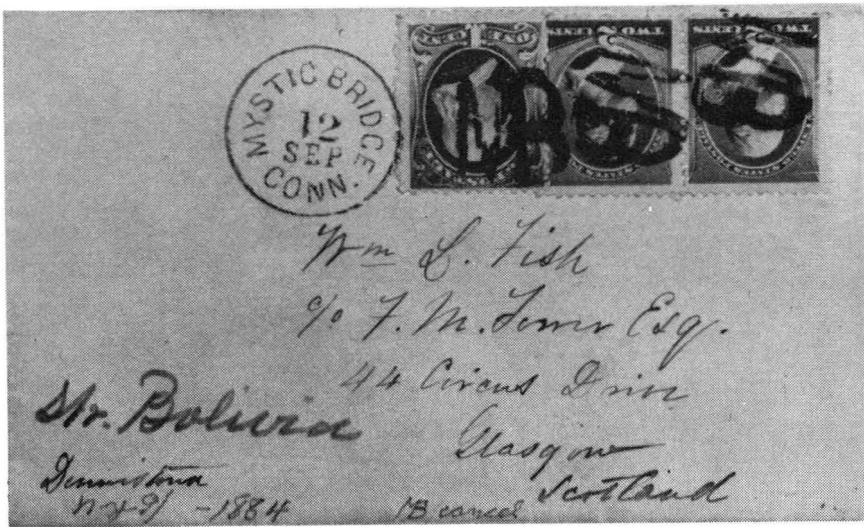 MYSTIC BRIDGE
12
SEP
CONN.
TWO CENTS
TWO CENTS
Wm L. Fish
c/o F. M. Esq.
44 Circus Drive
Glasgow
Scotland
Str. Bolivia
Dennistoun
-1884
MB cancel